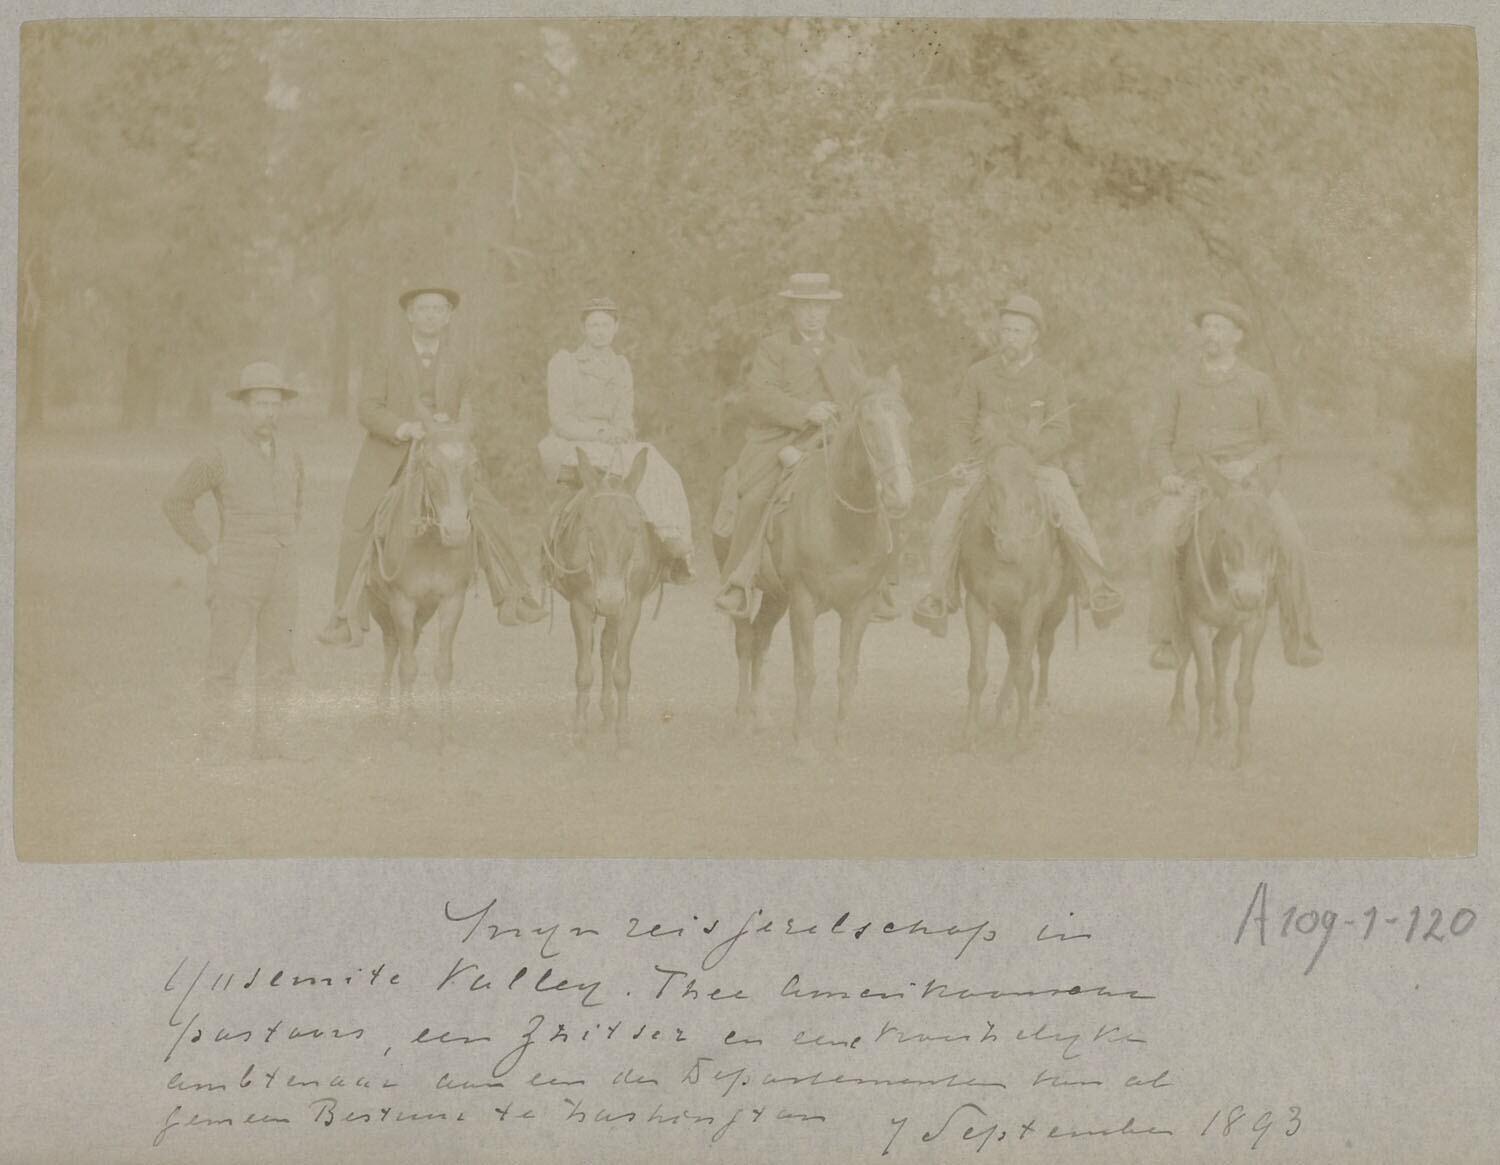 Mijn reisgezelschap in
A 109-1-120
Yosemite Valley. Twee Amerikaansche
pastoors, een Zwitser en eene vrouwelijke
ambtenaar aan een der Departementen van al
gemeen Bestuur te Washington
7 September 1893